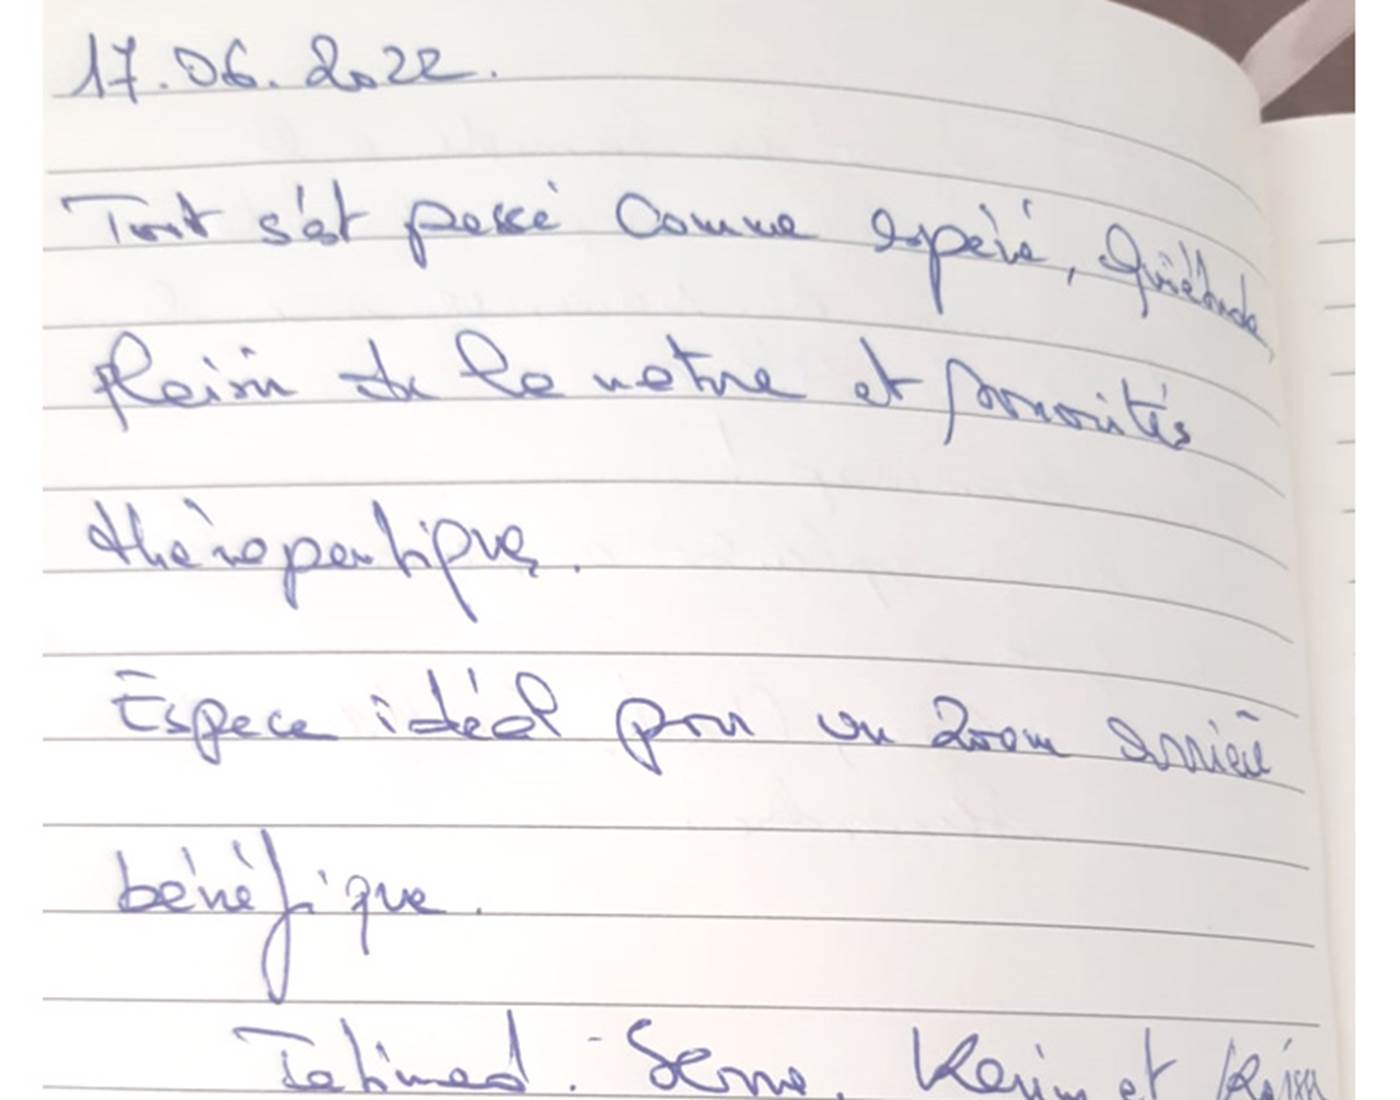 17.06.2022.
Tout s'est passé comme espéré, Quiétude,
plein de la nature et sonorités
thérapeutique.
Espace idéal pour un zoom arrière
bénéfique.
Karim et